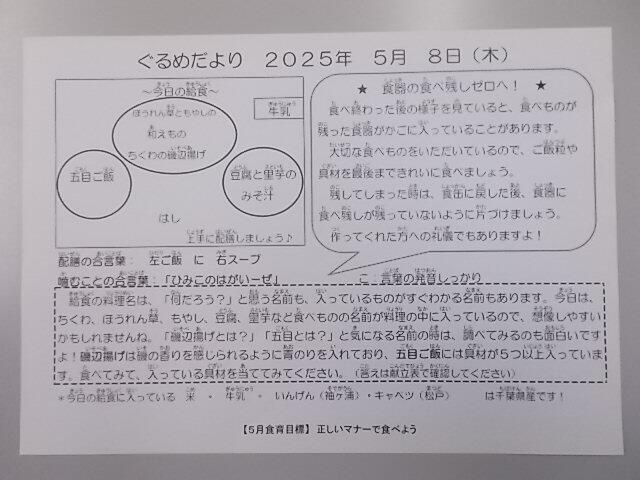 ぐるめだより　２０２５年　５月　８日（木）
～今日の給食～
ほうれん草ともやしの
和えもの
ちくわの磯辺揚げ
牛乳
五目ご飯
豆腐と里芋の
みそ汁
はし
上手に配膳しましょう♪
★　食器の食べ残しゼロへ！　★
食べ終わった後の様子を見ていると、食べものが
残った食器がかごに入っていることがあります。
大切な食べものをいただいているので、ご飯粒や
具材を最後まできれいに食べましょう。
残してしまった時は、食缶に戻した後、食器に
食べ残しが残っていないように片づけましょう。
作ってくれた方への礼儀でもありますよ！
配膳の合言葉：　左ご飯　に　右スープ
噛むことの合言葉：「ひみこのはがいーぜ」　　こ：言葉の発音しっかり
給食の料理名は、「何だろう？」と思う名前も、入っているものがすぐわかる名前もあります。今日は、
ちくわ、ほうれん草、もやし、豆腐、里芋など食べものの名前が料理の中に入っているので、想像しやすい
かもしれませんね。「磯辺揚げとは？」「五目とは？」と気になる名前の時は、調べてみるのも面白いです
よ！磯辺揚げは磯の香りを感じられるように青のりを入れており、五目ご飯には具材が５つ以上入っていま
す。食べてみて、入っている具材を当ててみてください。（答えは献立表で確認してください）
＊今日の給食に入っている　米　・　牛乳　・　いんげん（袖ヶ浦）・キャベツ（松戸）　　　は千葉県産です！
【５月食育目標】 正しいマナーで食べよう